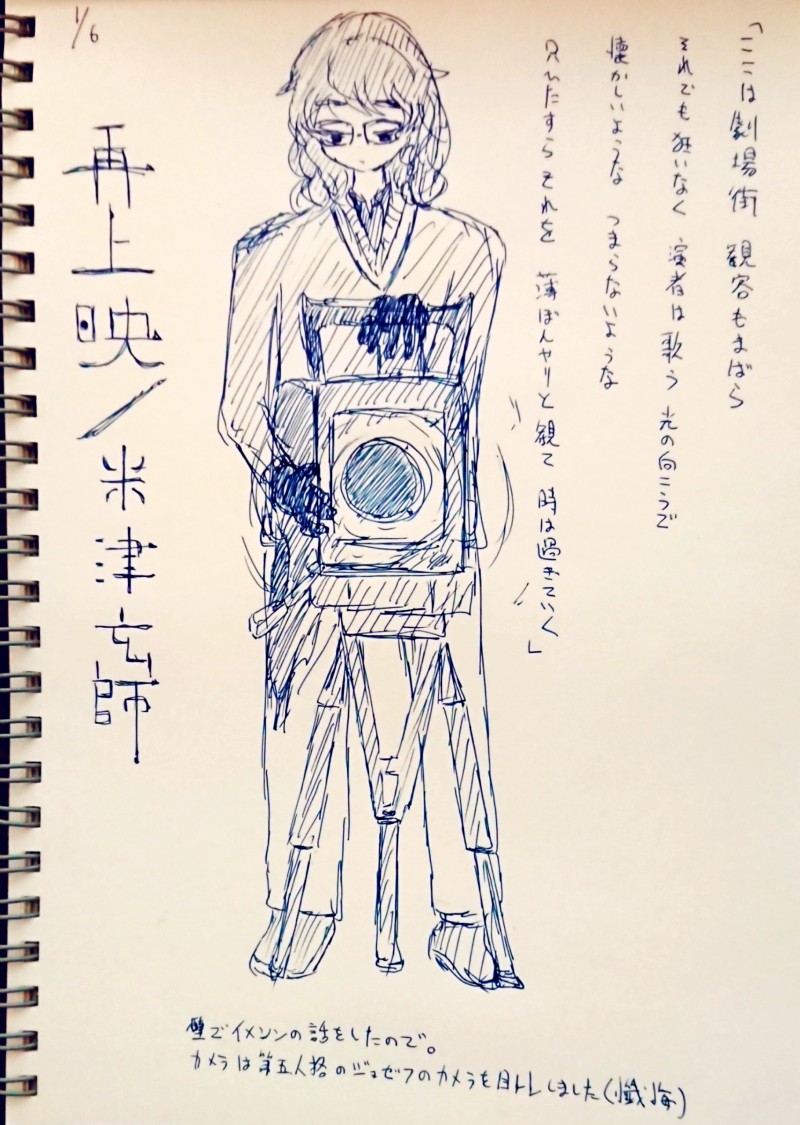 1/6
「ここは劇場街 観客もまばら
それでも狂いなく 演者は歌う 光の向こうで
懐かしいような つまらないような
只ひたすらそれを 薄ぼんやりと観て 時は過ぎていく」
再上映/米津玄師
壁でイメソンの話をしたので。
カメラは第五人格のジョゼフのカメラを目トレしました(懺悔)